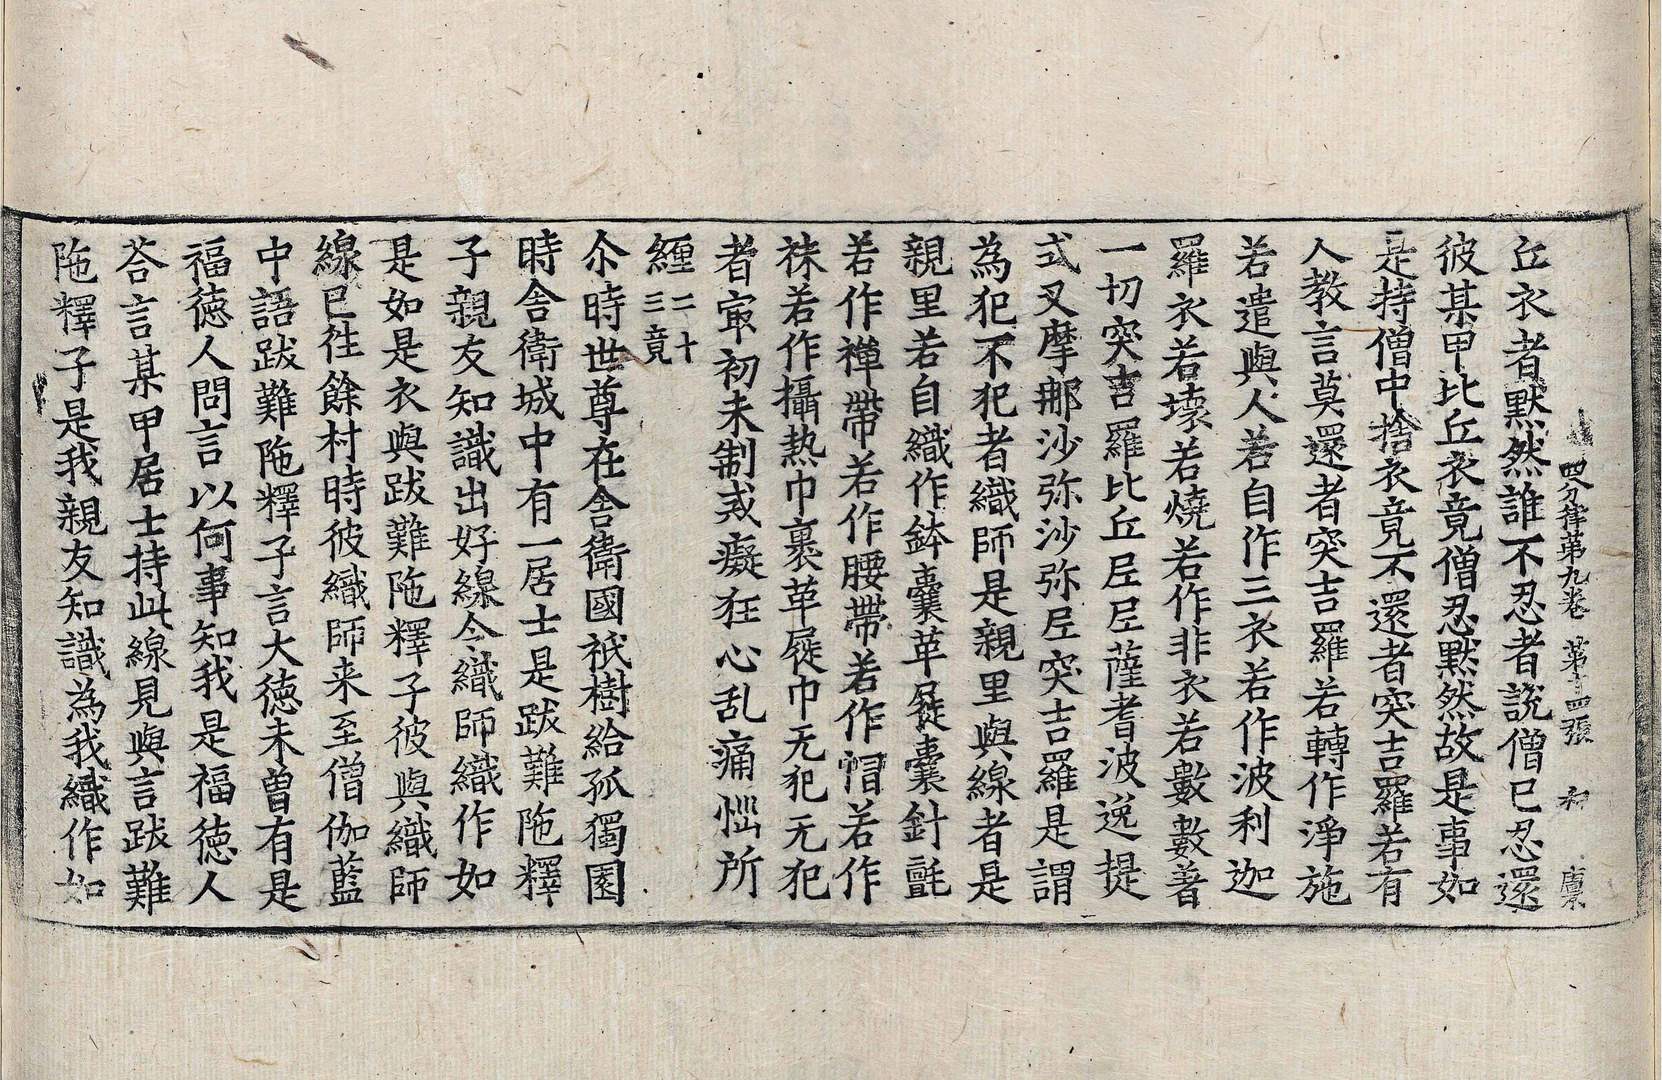 四分律第九卷 第十四張 和 廩
丘衣者默然誰不忍者說僧已忍還
彼某甲比丘衣竟僧忍默然故是事如
是持僧中捨衣竟不還者突吉羅若有
人教言莫還者突吉羅若轉作淨施
若遣與人若自作三衣若作波利迦
羅衣若壞若燒若作非衣若數數著
一切突吉羅比丘尼尼薩耆波逸提
式叉摩那沙弥沙弥尼突吉羅是謂
為犯不犯者織師是親里與線者是
親里若自織作鉢囊革屣囊針氈
若作禪帶若作腰帶若作帽若作
袜若作攝熱巾裹革屣巾无犯无犯
者㝡初未制戒癡狂心乱痛惱所
纏二十三竟
尒時世尊在舍衛國祇樹給孤獨園
時舍衛城中有一居士是跋難陁釋
子親友知識出好線令織師織作如
是如是衣與跋難陁釋子彼與織師
線已徃餘村時彼織師来至僧伽藍
中語跋難陁釋子言大徳未曽有是
福徳人問言以何事知我是福徳人
荅言某甲居士持此線見與言跋難
陁釋子是我親友知識為我織作如